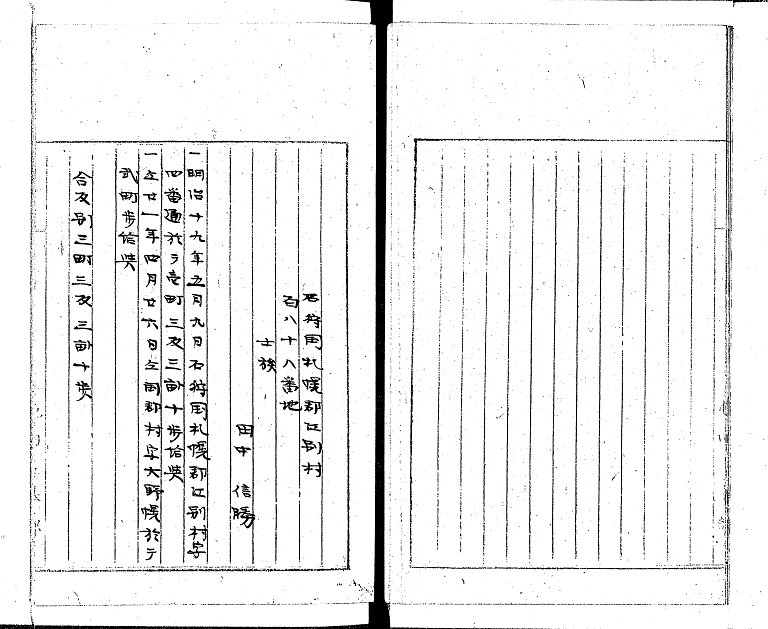 石狩国札幌郡江別村
百八十八番地
士族
田中 信勝
一明治十九年五月九日石狩国札幌郡江別村字
四番通於テ壱町三反三畝十歩給与
一仝廿一年四月廿六日仝国郡村字大野幌於テ
弐町歩給与
合反別三町三反三畝十歩